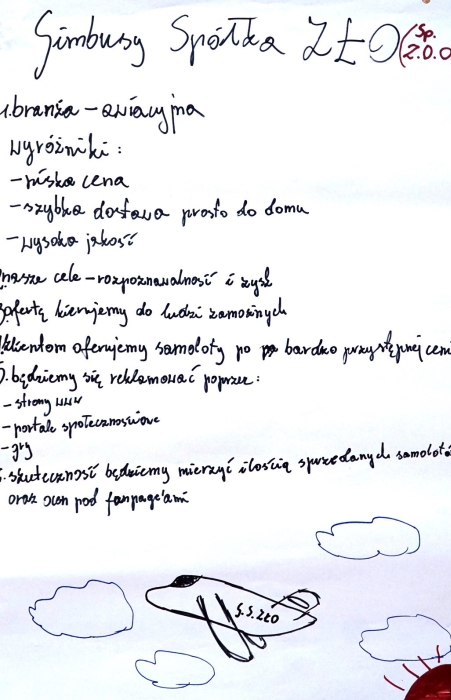 Gimbusy Spółka ZŁO (Sp. z.o.o
1.branża - awiacyjna
wyróżniki:
-niska cena
-szybka dostawa prosto do domu
-wysoka jakość
nasze cele - rozpoznawalność i zysk
3.ofertę kierujemy do ludzi zamożnych
klientom oferujemy samoloty po bardzo przystępnej ceni
5.będziemy się reklamować poprzez:
-strony www
-portale społecznościowe
-gry
6.skuteczność będziemy mierzyć ilością sprzedanych samolotó
oraz ocen pod fanpage'ami
G.S.ZŁO